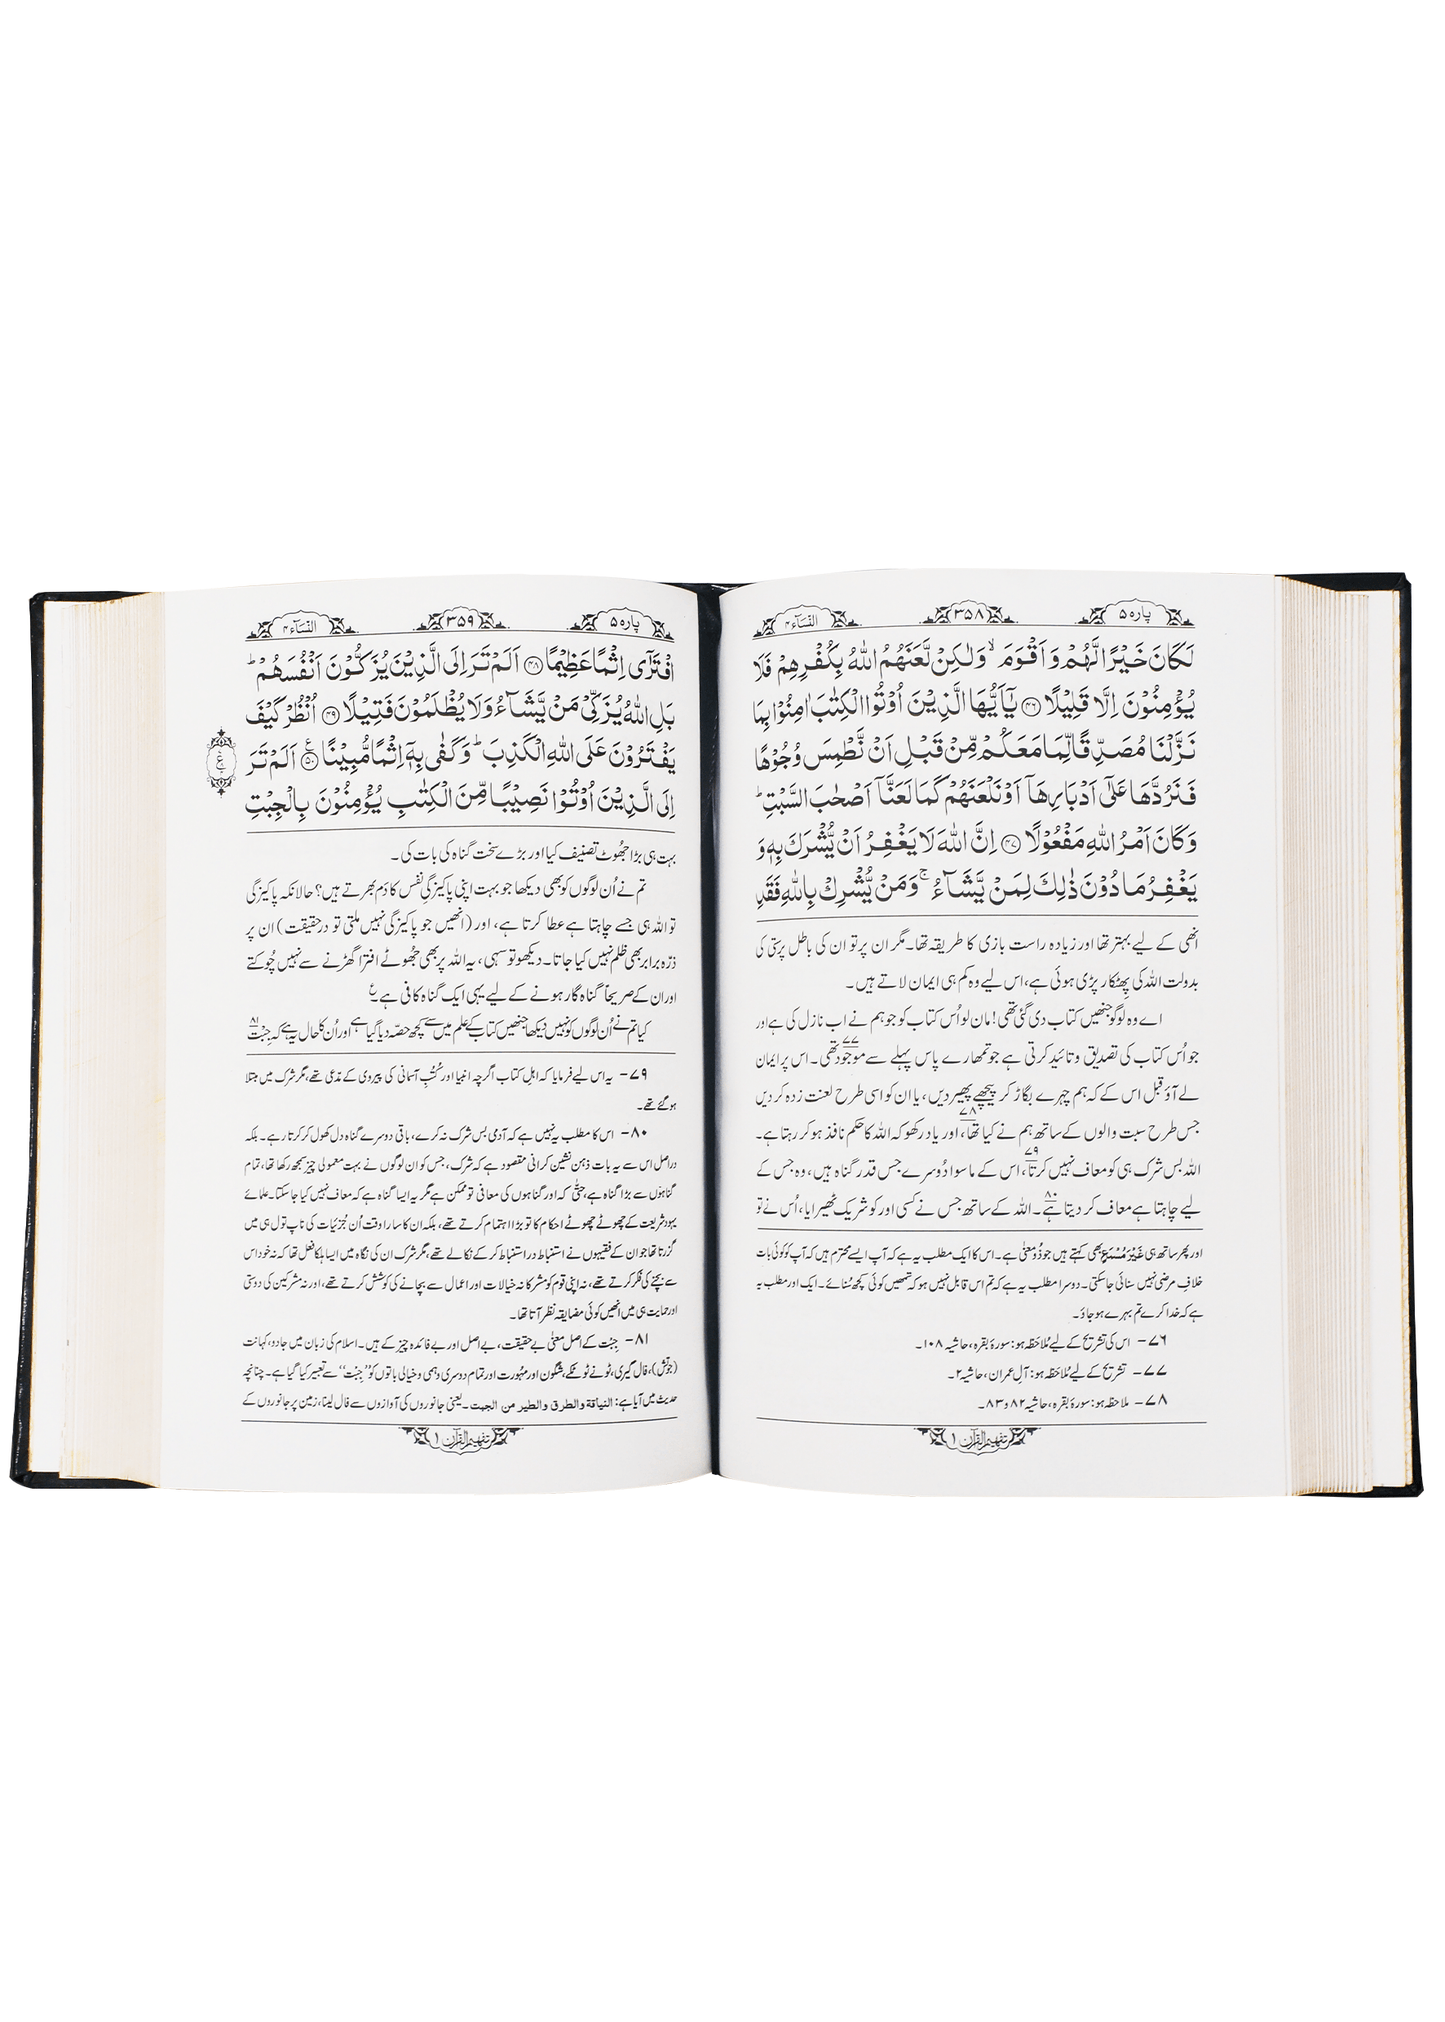 پارہ ۵
۳۵۸
النسآء ۴
لَكَانَ خَيْرًا لَّهُمْ وَاَقْوَمَ ۙ وَلٰكِنْ لَّعَنَهُمُ اللّٰهُ بِكُفْرِهِمْ فَلَا
يُؤْمِنُوْنَ اِلَّا قَلِيْلًا ﴿۴۶﴾ يٰۤاَيُّهَا الَّذِيْنَ اُوْتُوا الْكِتٰبَ اٰمِنُوْا بِمَا
نَزَّلْنَا مُصَدِّقًا لِّمَا مَعَكُمْ مِّنْ قَبْلِ اَنْ نَّطْمِسَ وُجُوْهًا
فَنَرُدَّهَا عَلٰۤى اَدْبَارِهَاۤ اَوْ نَلْعَنَهُمْ كَمَا لَعَنَّاۤ اَصْحٰبَ السَّبْتِ ؕ
وَكَانَ اَمْرُ اللّٰهِ مَفْعُوْلًا ﴿۴۷﴾ اِنَّ اللّٰهَ لَا يَغْفِرُ اَنْ يُّشْرَكَ بِهٖ وَ
يَغْفِرُ مَا دُوْنَ ذٰلِكَ لِمَنْ يَّشَآءُ ۚ وَمَنْ يُّشْرِكْ بِاللّٰهِ فَقَدِ
انھی کے لیے بہتر تھا اور زیادہ راست بازی کا طریقہ تھا۔ مگر ان پر تو ان کی باطل پرستی کی
بدولت اللہ کی پھٹکار پڑی ہوئی ہے، اس لیے وہ کم ہی ایمان لاتے ہیں۔
اے وہ لوگو جنھیں کتاب دی گئی تھی! مان لو اُس کتاب کو جو ہم نے اب نازل کی ہے اور
جو اُس کتاب کی تصدیق و تائید کرتی ہے جو تمھارے پاس پہلے سے موجود تھی۷۷۔ اس پر ایمان
لے آؤ قبل اس کے کہ ہم چہرے بگاڑ کر پیچھے پھیر دیں، یا ان کو اسی طرح لعنت زدہ کر دیں
جس طرح سبت والوں کے ساتھ ہم نے کیا تھا۷۸، اور یاد رکھو کہ اللہ کا حکم نافذ ہو کر رہتا ہے۔
اللہ بس شرک ہی کو معاف نہیں کرتا۷۹، اس کے ماسوا دُوسرے جس قدر گناہ ہیں، وہ جس کے
لیے چاہتا ہے معاف کر دیتا ہے۸۰۔ اللہ کے ساتھ جس نے کسی اور کو شریک ٹھیرایا، اُس نے تو
اور پھر ساتھ ہی غَیْرَ مُسْمَعٍ بھی کہتے ہیں جو ذُو معنی ہے۔ اس کا ایک مطلب یہ ہے کہ آپ ایسے محترم ہیں کہ آپ کو کوئی بات
خلافِ مرضی نہیں سنائی جا سکتی۔ دوسرا مطلب یہ ہے کہ تم اس قابل نہیں ہو کہ تمھیں کوئی کچھ سُنائے۔ ایک اور مطلب یہ
ہے کہ خدا کرے تم بہرے ہو جاؤ۔
۷۶- اس کی تشریح کے لیے مُلاحَظہ ہو: سورۂ بقرہ، حاشیہ ۱۰۸۔
۷۷- تشریح کے لیے مُلاحَظہ ہو: آلِ عمران، حاشیہ ۲۔
۷۸- ملاحظہ ہو: سورۂ بقرہ، حاشیہ ۸۲ و ۸۳۔
تفہیم القرآن ۱
پارہ ۵
۳۵۹
النسآء ۴
افْتَرٰۤى اِثْمًا عَظِيْمًا ﴿۴۸﴾ اَلَمْ تَرَ اِلَى الَّذِيْنَ يُزَكُّوْنَ اَنْفُسَهُمْ ؕ
بَلِ اللّٰهُ يُزَكِّيْ مَنْ يَّشَآءُ وَلَا يُظْلَمُوْنَ فَتِيْلًا ﴿۴۹﴾ اُنْظُرْ كَيْفَ
يَفْتَرُوْنَ عَلَى اللّٰهِ الْكَذِبَ ؕ وَكَفٰى بِهٖۤ اِثْمًا مُّبِيْنًا ﴿۵۰﴾ ع اَلَمْ تَرَ
اِلَى الَّذِيْنَ اُوْتُوْا نَصِيْبًا مِّنَ الْكِتٰبِ يُؤْمِنُوْنَ بِالْجِبْتِ
بہت ہی بڑا جھُوٹ تصنیف کیا اور بڑے سخت گناہ کی بات کی۔
تم نے اُن لوگوں کو بھی دیکھا جو بہت اپنی پاکیزگیِ نفس کا دَم بھرتے ہیں؟ حالانکہ پاکیزگی
تو اللہ ہی جسے چاہتا ہے عطا کرتا ہے، اور (انھیں جو پاکیزگی نہیں ملتی تو درحقیقت) ان پر
ذرّہ برابر بھی ظلم نہیں کیا جاتا۔ دیکھو تو سہی، یہ اللہ پر بھی جھُوٹے افترا گھڑنے سے نہیں چُوکتے
اور ان کے صریحاً گناہ گار ہونے کے لیے یہی ایک گناہ کافی ہے ع
کیا تم نے اُن لوگوں کو نہیں دیکھا جنھیں کتاب کے علم میں سے کچھ حصّہ دیا گیا ہے اور اُن کا حال یہ ہے کہ جِبْت۸۱
۷۹- یہ اس لیے فرمایا کہ اہلِ کتاب اگرچہ انبیا اور کُتُبِ آسمانی کی پیروی کے مُدّعی تھے، مگر شرک میں مبتلا
ہو گئے تھے۔
۸۰- اس کا مطلب یہ نہیں ہے کہ آدمی بس شرک نہ کرے، باقی دوسرے گناہ دل کھول کر کرتا رہے۔ بلکہ
دراصل اس سے یہ بات ذہن نشین کرانی مقصود ہے کہ شرک، جس کو ان لوگوں نے بہت معمولی چیز سمجھ رکھا تھا، تمام
گناہوں سے بڑا گناہ ہے، حتّٰی کہ اور گناہوں کی معافی تو ممکن ہے مگر یہ ایسا گناہ ہے کہ معاف نہیں کیا جا سکتا۔ علمائے
یہود شریعت کے چھوٹے چھوٹے احکام کا تو بڑا اہتمام کرتے تھے، بلکہ ان کا سارا وقت اُن جُزئیات کی ناپ تول ہی میں
گزرتا تھا جو ان کے فقیہوں نے استنباط در استنباط کر کے نکالے تھے، مگر شرک ان کی نگاہ میں ایسا ہلکا فعل تھا کہ نہ خود اس
سے بچنے کی فکر کرتے تھے، نہ اپنی قوم کو مشرکانہ خیالات اور اعمال سے بچانے کی کوشش کرتے تھے، اور نہ مشرکین کی دوستی
اور حمایت ہی میں انھیں کوئی مضایقہ نظر آتا تھا۔
۸۱- جِبْت کے اصل معنیٰ بے حقیقت، بے اصل اور بے فائدہ چیز کے ہیں۔ اسلام کی زبان میں جادو، کہانت
(جوتش)، فال گیری، ٹونے ٹوٹکے، شگون اور مہُورت اور تمام دوسری وہمی و خیالی باتوں کو ”جِبْت“ سے تعبیر کیا گیا ہے۔ چنانچہ
حدیث میں آیا ہے: النیاقۃ والطرق والطیر من الجبت۔ یعنی جانوروں کی آوازوں سے فال لینا، زمین پر جانوروں کے
تفہیم القرآن ۱